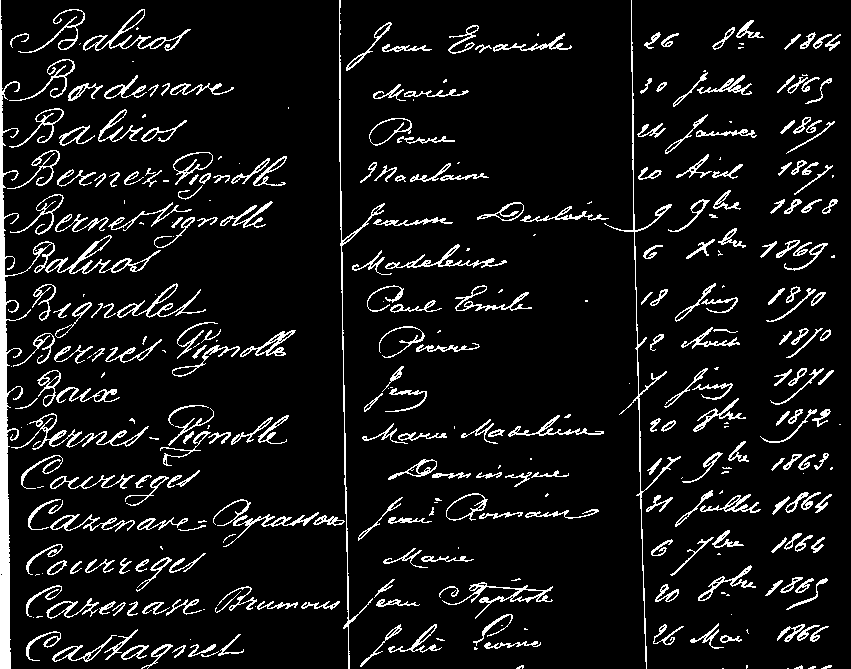 Baliros Jean Evariste 26 8bre 1864
Bordenave Marie 30 Juillet 1865
Baliros Pierre 24 Janvier 1867
Bernez-Vignolle Madelaine 20 Avril 1867.
Bernès-Vignolle Jeanne 9 9bre 1868
Baliros Madeleine 6 Xbre 1869.
Bignalet Paul Emile 18 Juin 1870
Bernés-Vignolle Pierre 12 Août 1870
Baix Jean 7 Juin 1871
Bernès-Vignolle Marie Madeleine 20 8bre 1872.
Courrèges Dominique 17 9bre 1863.
Cazenave=Peyrassou Jean Romain 31 Juillet 1864
Courrèges Marie 6 7bre 1864
Cazenave Brumous Jean Baptiste 20 8bre 1865
Castagnet Julie 26 Mai 1866